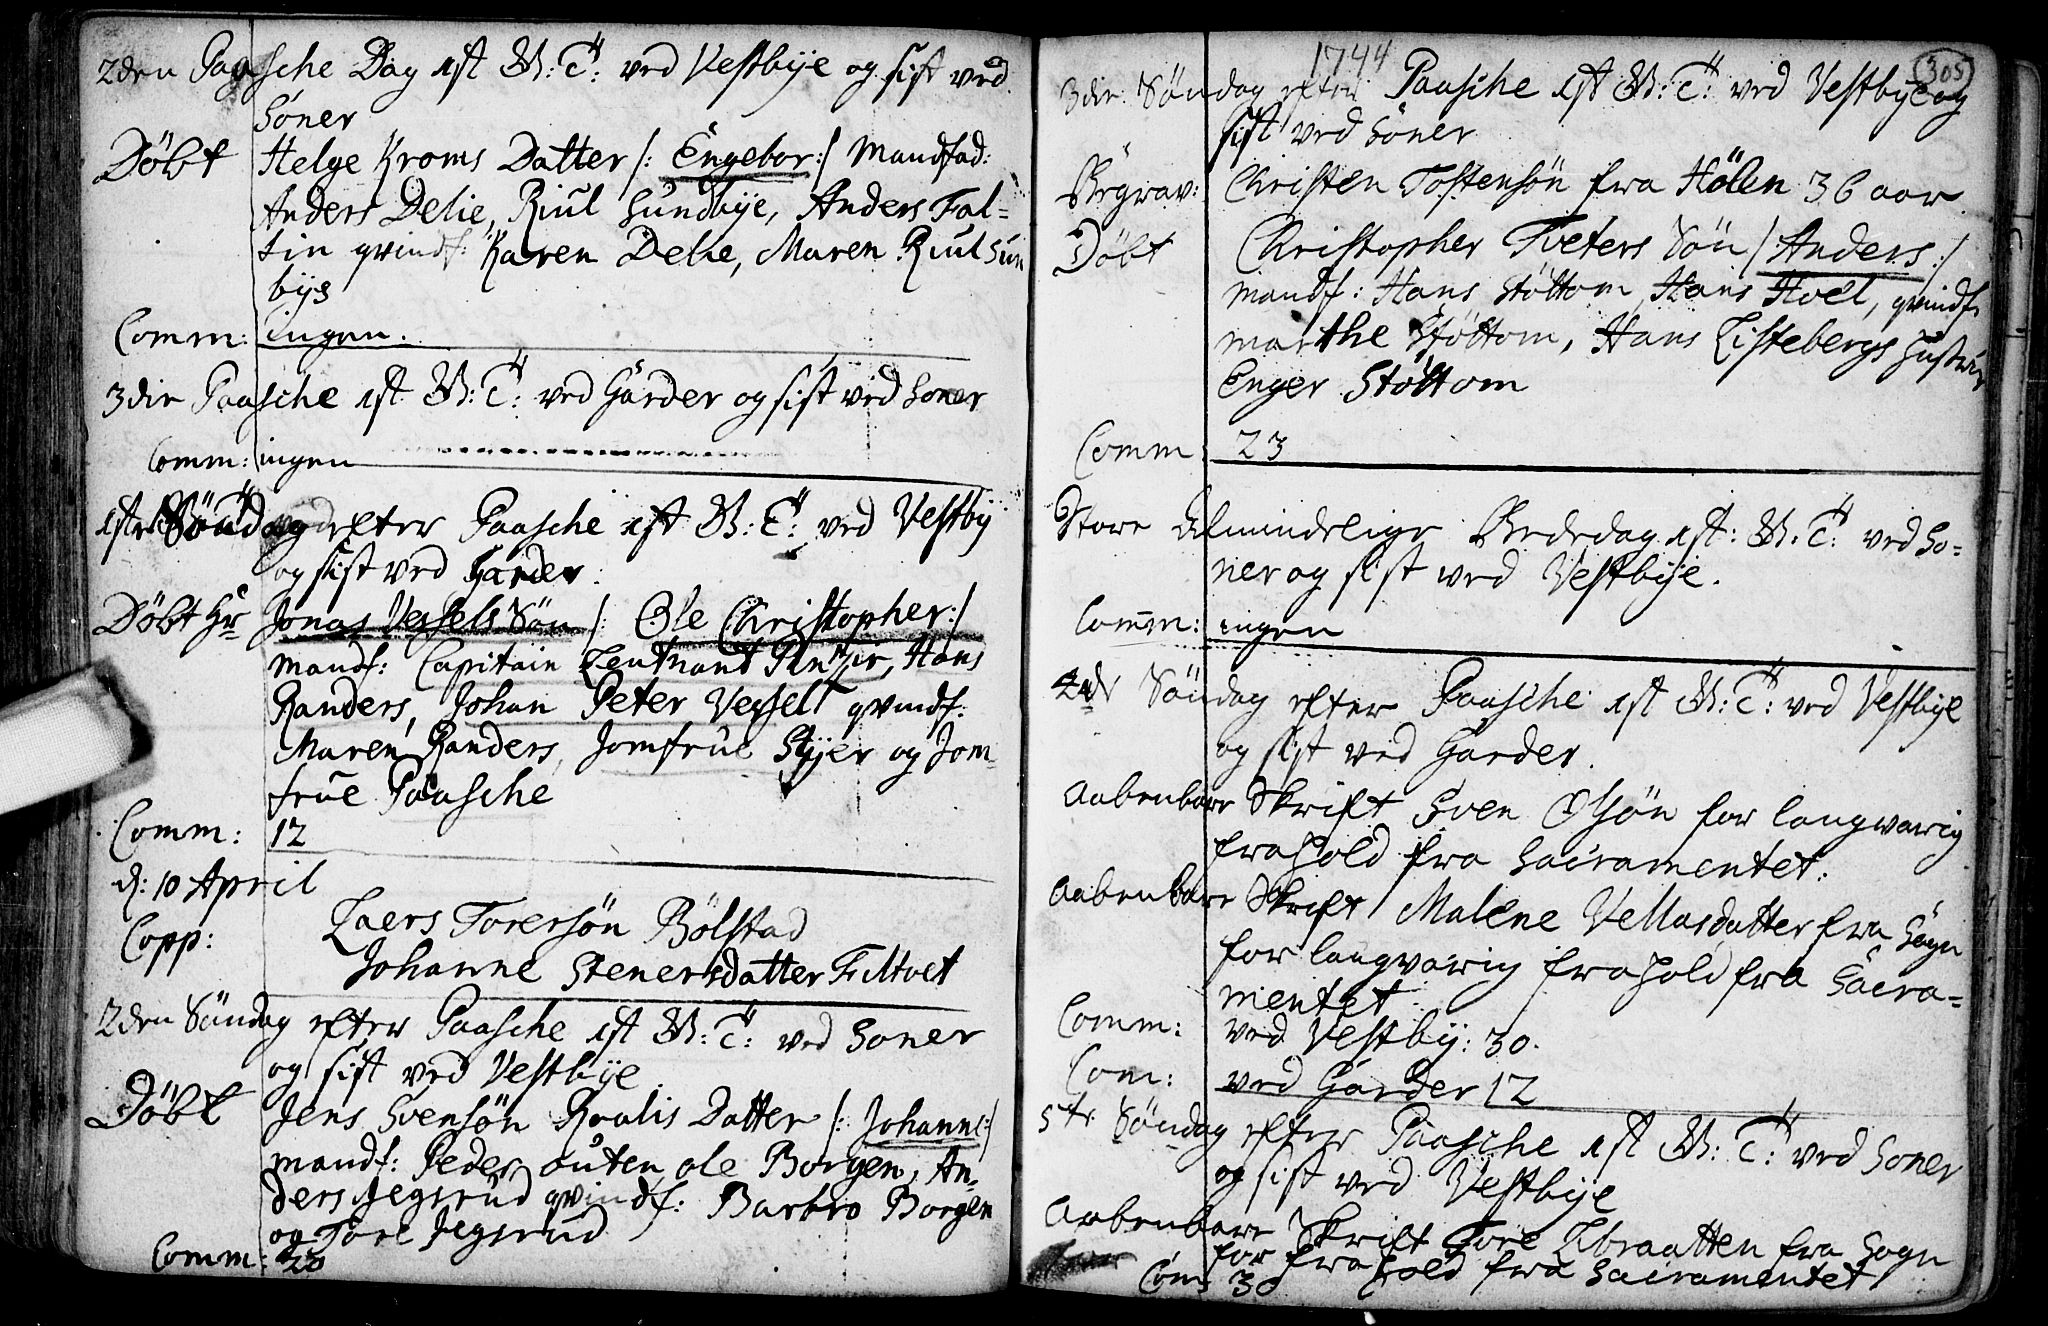 2den Paasche Dag est B: T: ved Vestbye og sist ved
Soner
Döbt Helge Kroms Datter /: Engebor :/ Mandfad:
Anders Delie, Riul Sundbye, Anders Fal=
tin qvindf: Karen Delie, Maren Riul Sun
bye
Comm: ingen.
3die Paasche est B: T: ved Garder og sist ved Soner
Comm: ingen
1ste Söndag efter Paasche est B: T: ved Vestby
og sist ved Garder.
Döbt Hr Jonas Vessels Sön /: Ole Christopher :/
mandf: Capitain Leutnant, Hans
Randers, Johan Peter Vessell qvindf:
Maren Randers, Jomfrue Styer og Jom=
frue Paasche
Comm: 12
d: 10 April
Copp: Laers Toresön Bölstad
Johanne Stenersdatter Filtvet
2den Söndag efter Paasche est B: T: ved Soner
og sist ved Vestbye
Döbt Jens Svensön Roalis Datter /: Johanne :/
mandf: Peder outen, ole Borgen, An=
ders Jegsrud qvindf: Barbro Borgen
og Tore Jegsrud
Comm: 20
1744
305
3die Söndag efter Paasche est B: T: ved Vestbye og
sist ved Soner
Begrav: Christen Tostensön fra Hölen 36 aar
Döbt Christopher Tveters Sön /: Anders :/
mandf: Hans Stöttom, Hans Hoel, qvindf
marthe Stöttom, Hans Listebergs Hustrue
Enger Stöttom
Comm: 23
Store Almindelige Bededag est: B: T: ved So=
ner og sist ved Vestbye.
Comm: ingen
4de Söndag efter Paasche est B: T: ved Vestbye
og sist ved Garder.
Aabenbare Skrift Sven Olsön for langvarig
frahold fra Sacramentet:
Aabenbare Skrift Malene Vellasdatter fra Sogn
for langvarig frahold fra Sacra=
mentet
Comm: ved Vestby: 30.
Com: ved Garder 12
5te Söndag efter Paasche est B: T: ved Soner
og sist ved Vestbye
Aabenbare Skrift Tore Libraatten fra Sogn
for frahold fra Sacramentet
Com: 30